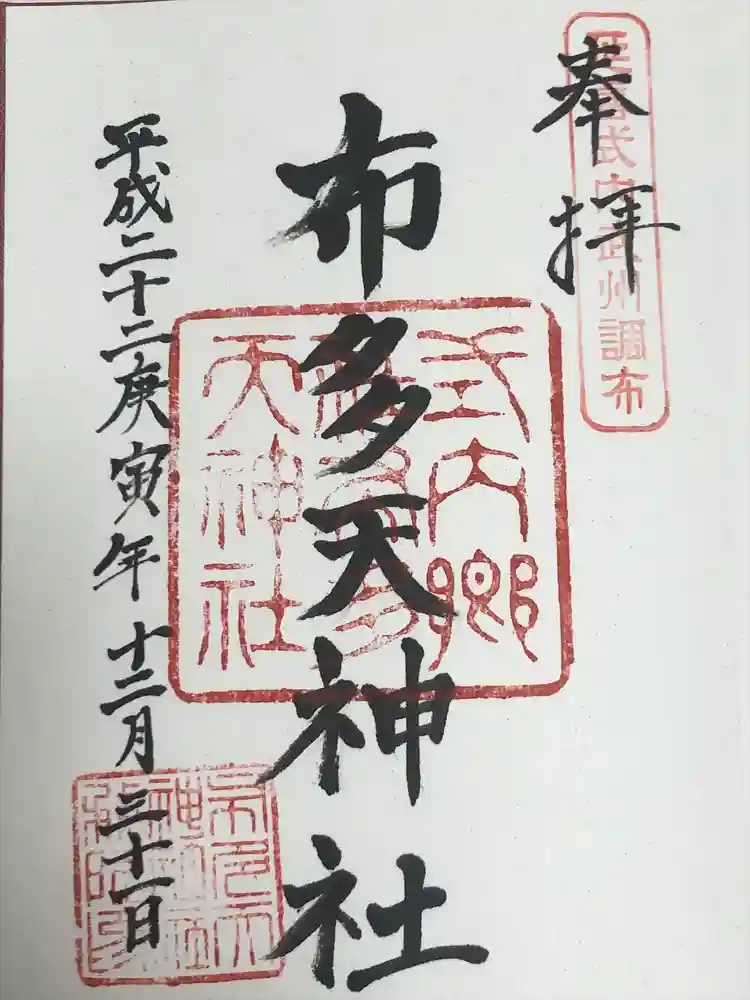 奉拝
延喜式内武州調布
布多天神社
式内郷
天神社
平成二十二庚寅年十二月三十一日
布多天
神社